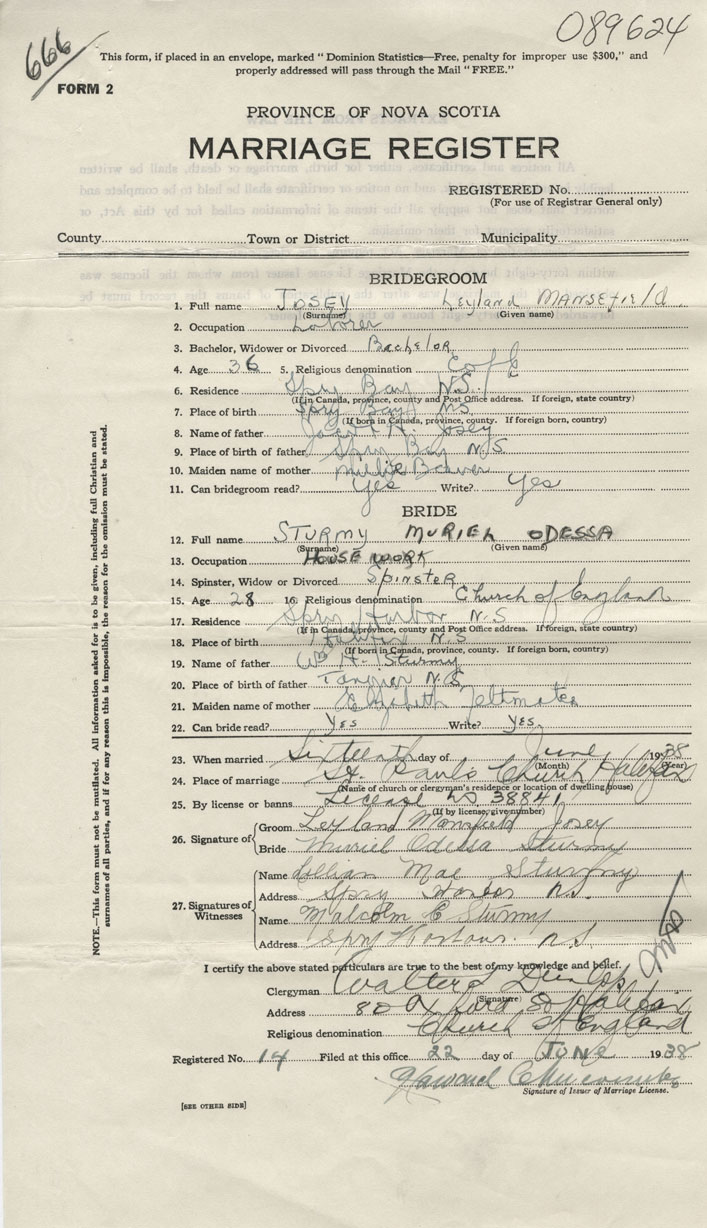 089624
666
This form, if placed in an envelope, marked "Dominion Statistics—Free, penalty for improper use $300," and
properly addressed will pass through the Mail "FREE."
FORM 2
PROVINCE OF NOVA SCOTIA
MARRIAGE REGISTER
REGISTERED No.
(For use of Registrar General only)
County Town or District Municipality
BRIDEGROOM
1. Full name JOSEY Leyland MANSEFIELD
(Surname) (Given name)
2. Occupation Laborer
3. Bachelor, Widower or Divorced Bachelor
4. Age 36 5. Religious denomination C of E
6. Residence Spry Bay N.S.
(If in Canada, province, county and Post Office address. If foreign, state country)
7. Place of birth Spry Bay NS
(If born in Canada, province, county. If foreign born, country)
8. Name of father H. Josey
9. Place of birth of father Spry Bay N.S
10. Maiden name of mother Beaver
11. Can bridegroom read? Yes Write? Yes
BRIDE
12. Full name STURMY MURIEL ODESSA
(Surname) (Given name)
13. Occupation HOUSE WORK
14. Spinster, Widow or Divorced Spinster
15. Age 28 16. Religious denomination Church of England
17. Residence Spry Harbor N.S
(If in Canada, province, county and Post Office address. If foreign, state country)
18. Place of birth N.S
(If born in Canada, province, county. If foreign born, country)
19. Name of father Wm H. Sturmy
20. Place of birth of father Tangier N.S.
21. Maiden name of mother Elizabeth
22. Can bride read? Yes Write? Yes
23. When married Sixteenth day of June 1938
(Month) (Year)
24. Place of marriage St. Paul's Church Halifax
(Name of church or clergyman's residence or location of dwelling house)
25. By license or banns License No 38841
(If by license, give number)
26. Signature of
Groom Leyland Mansfield Josey
Bride Muriel Odessa Sturmy
27. Signatures of Witnesses
Name Lillian Mae Sturmy
Address Spry Harbor N.S.
Name Malcolm C Sturmy
Address Spry Harbour. N.S.
I certify the above stated particulars are true to the best of my knowledge and belief.
Clergyman Walter S Dunlop
(Signature)
Address 80 Oxford St Halifax
Religious denomination Church of England
Registered No. 14 Filed at this office 22 day of JUNE 1938
Howard
Signature of Issuer of Marriage License.
[SEE OTHER SIDE]
NOTE.—This form must not be mutilated. All information asked for is to be given, including full Christian and
surnames of all parties, and if for any reason this is impossible, the reason for the omission must be stated.